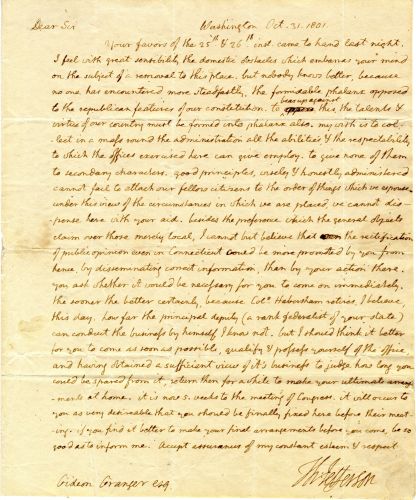 Dear Sir Washington Oct. 31. 1801.
Your favors of the 25th & 26th inst. came to hand last night.
I feel with great sensibility the domestic obstacles which embarras your mind
on the subject of a removal to this place. but nobody knows better, because
no one has encountered more steadfastly, the formidable phalanx opposed
to the republican features of our constitution. to bear up against this the talents &
virtues of our country must be formed into phalanx also. my wish is to col-
lect in a mass round the administration all the abilities & the respectability
to which the offices exercised here can give employ. to give none of them
to secondary characters. good principles, wisely & honestly administered
cannot fail to attach our fellow citizens to the order of things which we espouse.
under this view of the circumstances in which we are placed, we cannot dis-
pense here with your aid. besides the preference which the general objects
claim over those merely local, I cannot but believe that the rectification
of public opinion even in Connecticut could be more promoted by you from
hence by disseminating correct information, than by your action there.
you ask whether it would be necessary for you to come on immediately.
the sooner the better certainly, because Colo. Habersham retires, I believe,
this day. how far the principal deputy (a rank federalist of your state)
can conduct the business by himself I know not. but I should think it better
for you to come as soon as possible, qualify & possess yourself of the office,
and having obtained a sufficient view of it's business to judge how long you
could be spared from it, return then for a while to make your ultimate arrange-
ments at home. it is now 5. weeks to the meeting of Congress. it will occur to
you as very desireable that you should be finally fixed here before their meet-
ing. if you find it better to make your final arrangements before you come, be so
good as to inform me. Accept assurances of my constant esteem & respect
Th: Jefferson
Gideon Granger esq.